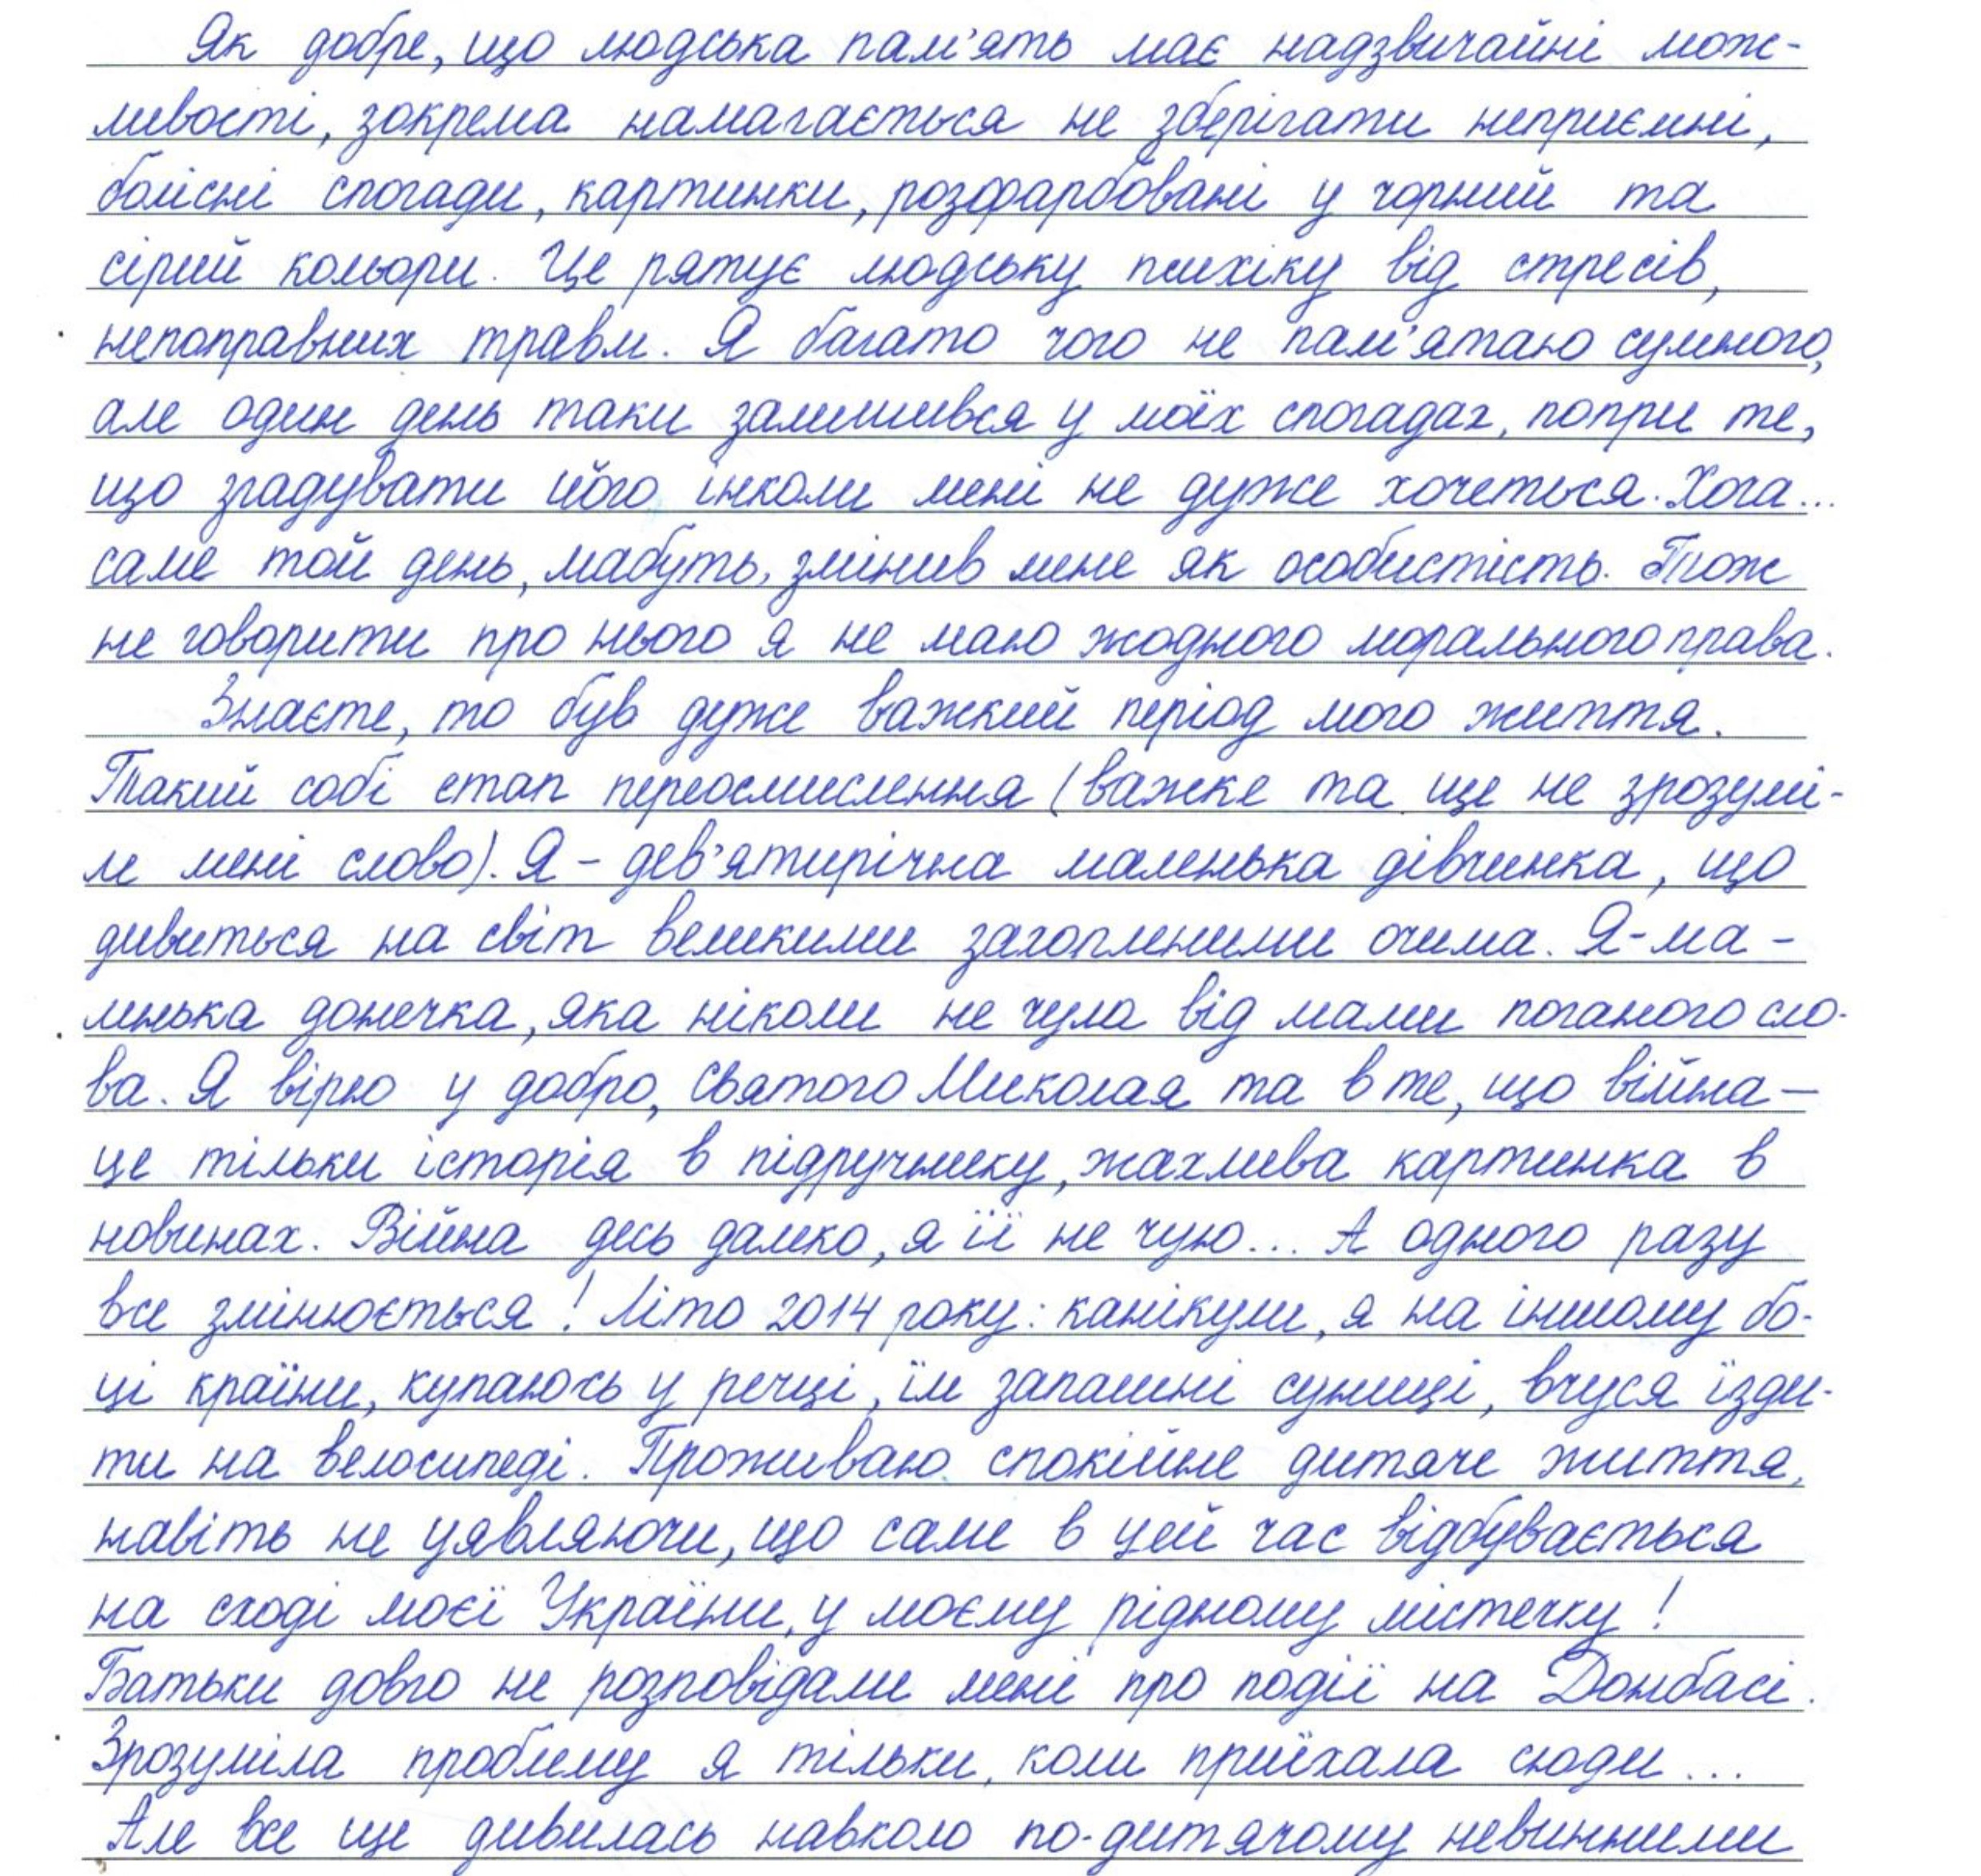 Як добре, що людська пам'ять має надзвичайні мож-
ливості, зокрема намагається не зберігати неприємні,
болісні спогади, картинки, розфарбовані у чорний та
сірий кольори. Це рятує людську психіку від стресів,
непоправних травм. Я багато чого не пам'ятаю сумного,
але один день таки залишився у моїх спогадах, попри те,
що згадувати його інколи мені не дуже хочеться. Хоча...
саме той день, мабуть, змінив мене як особистість. Тож
не говорити про нього я не маю жодного морального права.
Знаєте, то був дуже важкий період мого життя.
Такий собі етап переосмислення (важке та ще не зрозумі-
ле мені слово). Я – дев'ятирічна маленька дівчинка, що
дивиться на світ великими захопленими очима. Я - ма-
ленька донечка, яка ніколи не чула від мами поганого сло-
ва. Я вірю у добро, Святого Миколая та в те, що війна –
це тільки історія в підручнику, жахлива картинка в
новинах. Війна десь далеко, я її не чую... А одного разу
все змінюється! Літо 2014 року: канікули, я на іншому бо-
ці країни, купаюсь у речці, їм запашні суниці, вчуся їзди-
ти на велосипеді. Проживаю спокійне дитяче життя,
навіть не уявляючи, що саме в цей час відбувається
на сході моєї України, у моєму рідному містечку!
Батьки довго не розповідали мені про події на Донбасі.
Зрозуміла проблему я тільки, коли приїхала сюди...
Але все ще дивилась навколо по-дитячому невинними